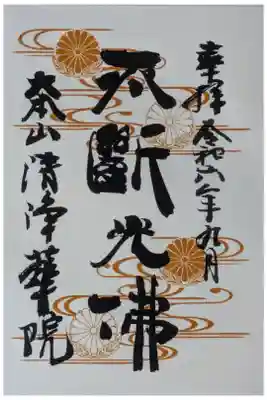 奉拝 令和六年九月
不斷光佛
本山 清浄華院